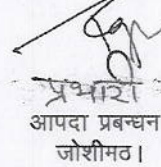 प्रभारी
आपदा प्रबन्धन
जोशीमठ।